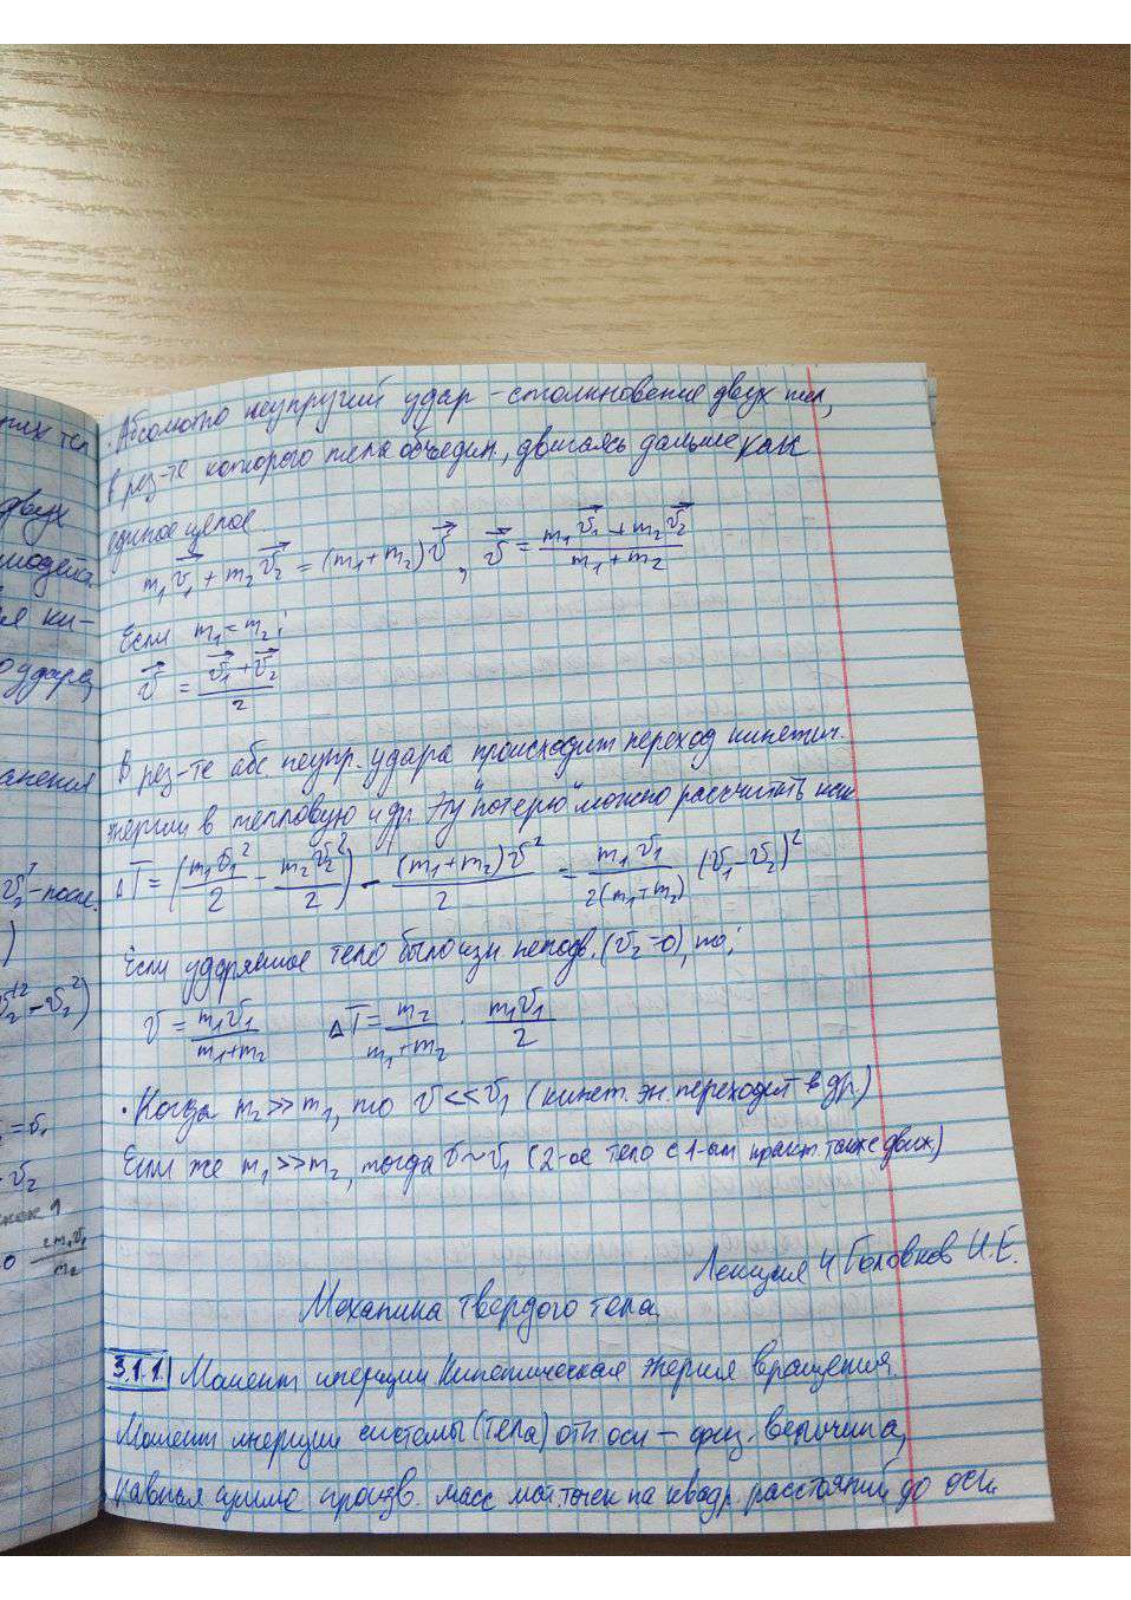 рих тел
двух
модейст.
ия ки-
о удара,
анения
v₂' - после.
)
v₂'² - v₂²)
= v₁
v₂
как 1
0 2m₁v₁
m₂
· Абсолютно неупругий удар - столкновение двух тел,
в рез-те которого тела объедин., двигаясь дальше как
единое целое
m₁v⃗₁ + m₂v⃗₂ = (m₁+m₂)v⃗, v⃗ = (m₁v⃗₁ + m₂v⃗₂)/(m₁+m₂)
Если m₁=m₂;
v⃗ = (v⃗₁+v⃗₂)/2
В рез-те абс. неупр. удара происходит переход кинетич.
энергии в тепловую и др. Эту "потерю" можно рассчитать как
ΔT = (m₁v₁²/2 - m₂v₂²/2) - (m₁+m₂)v²/2 = m₁v₁/2(m₁+m₂) (v₁-v₂)²
Если ударявшое тело было изн. неподв. (v₂=0), то;
v = m₁v₁/(m₁+m₂) ΔT = m₂/(m₁+m₂) · m₁v₁/2
· Когда m₂>>m₁, то v<<v₁ (кинет. эн. переходит в др.)
Если же m₁>>m₂, тогда v~v₁ (2-ое тело с 1-ым практ. также движ.)
Лекция 4 Головков И.Е.
Механика твердого тела
3.1.1. Момент инерции Кинетическая энергия вращения.
Момент инерции системы (тела) отн. оси - физ. величина,
равная сумме произв. масс мат. точек на квадр. расстояний до оси